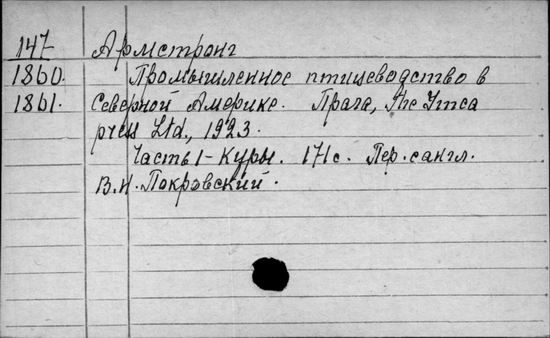 147 Армстронг
1860. Промышленное птицеводство в
1861. Северной Америке. Прага, The Ymca
press Ltd., 1923.
Часть 1 - Куры. 171с. Пер. сангл.
В.Н. Покровский.